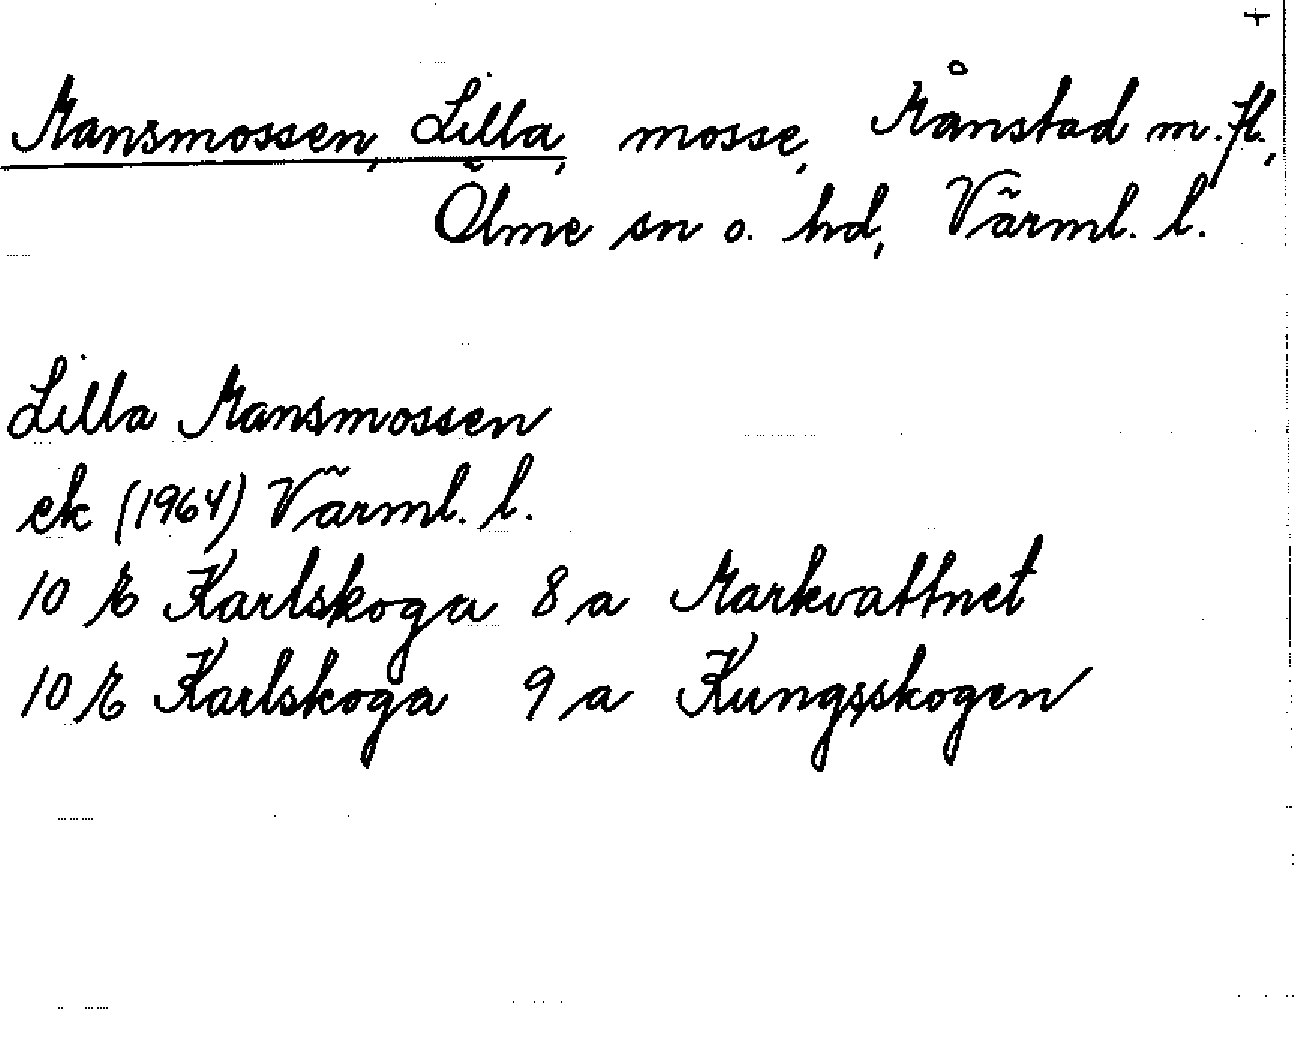 +
Mansmossen, Lilla, mosse, Månstad m.fl.,
Ölme sn o. hd, Värml. l.
Lilla Mansmossen
ek (1964) Värml. l.
10 E Karlskoga 8 a Markvattnet
10 E Karlskoga 9 a Kungsskogen